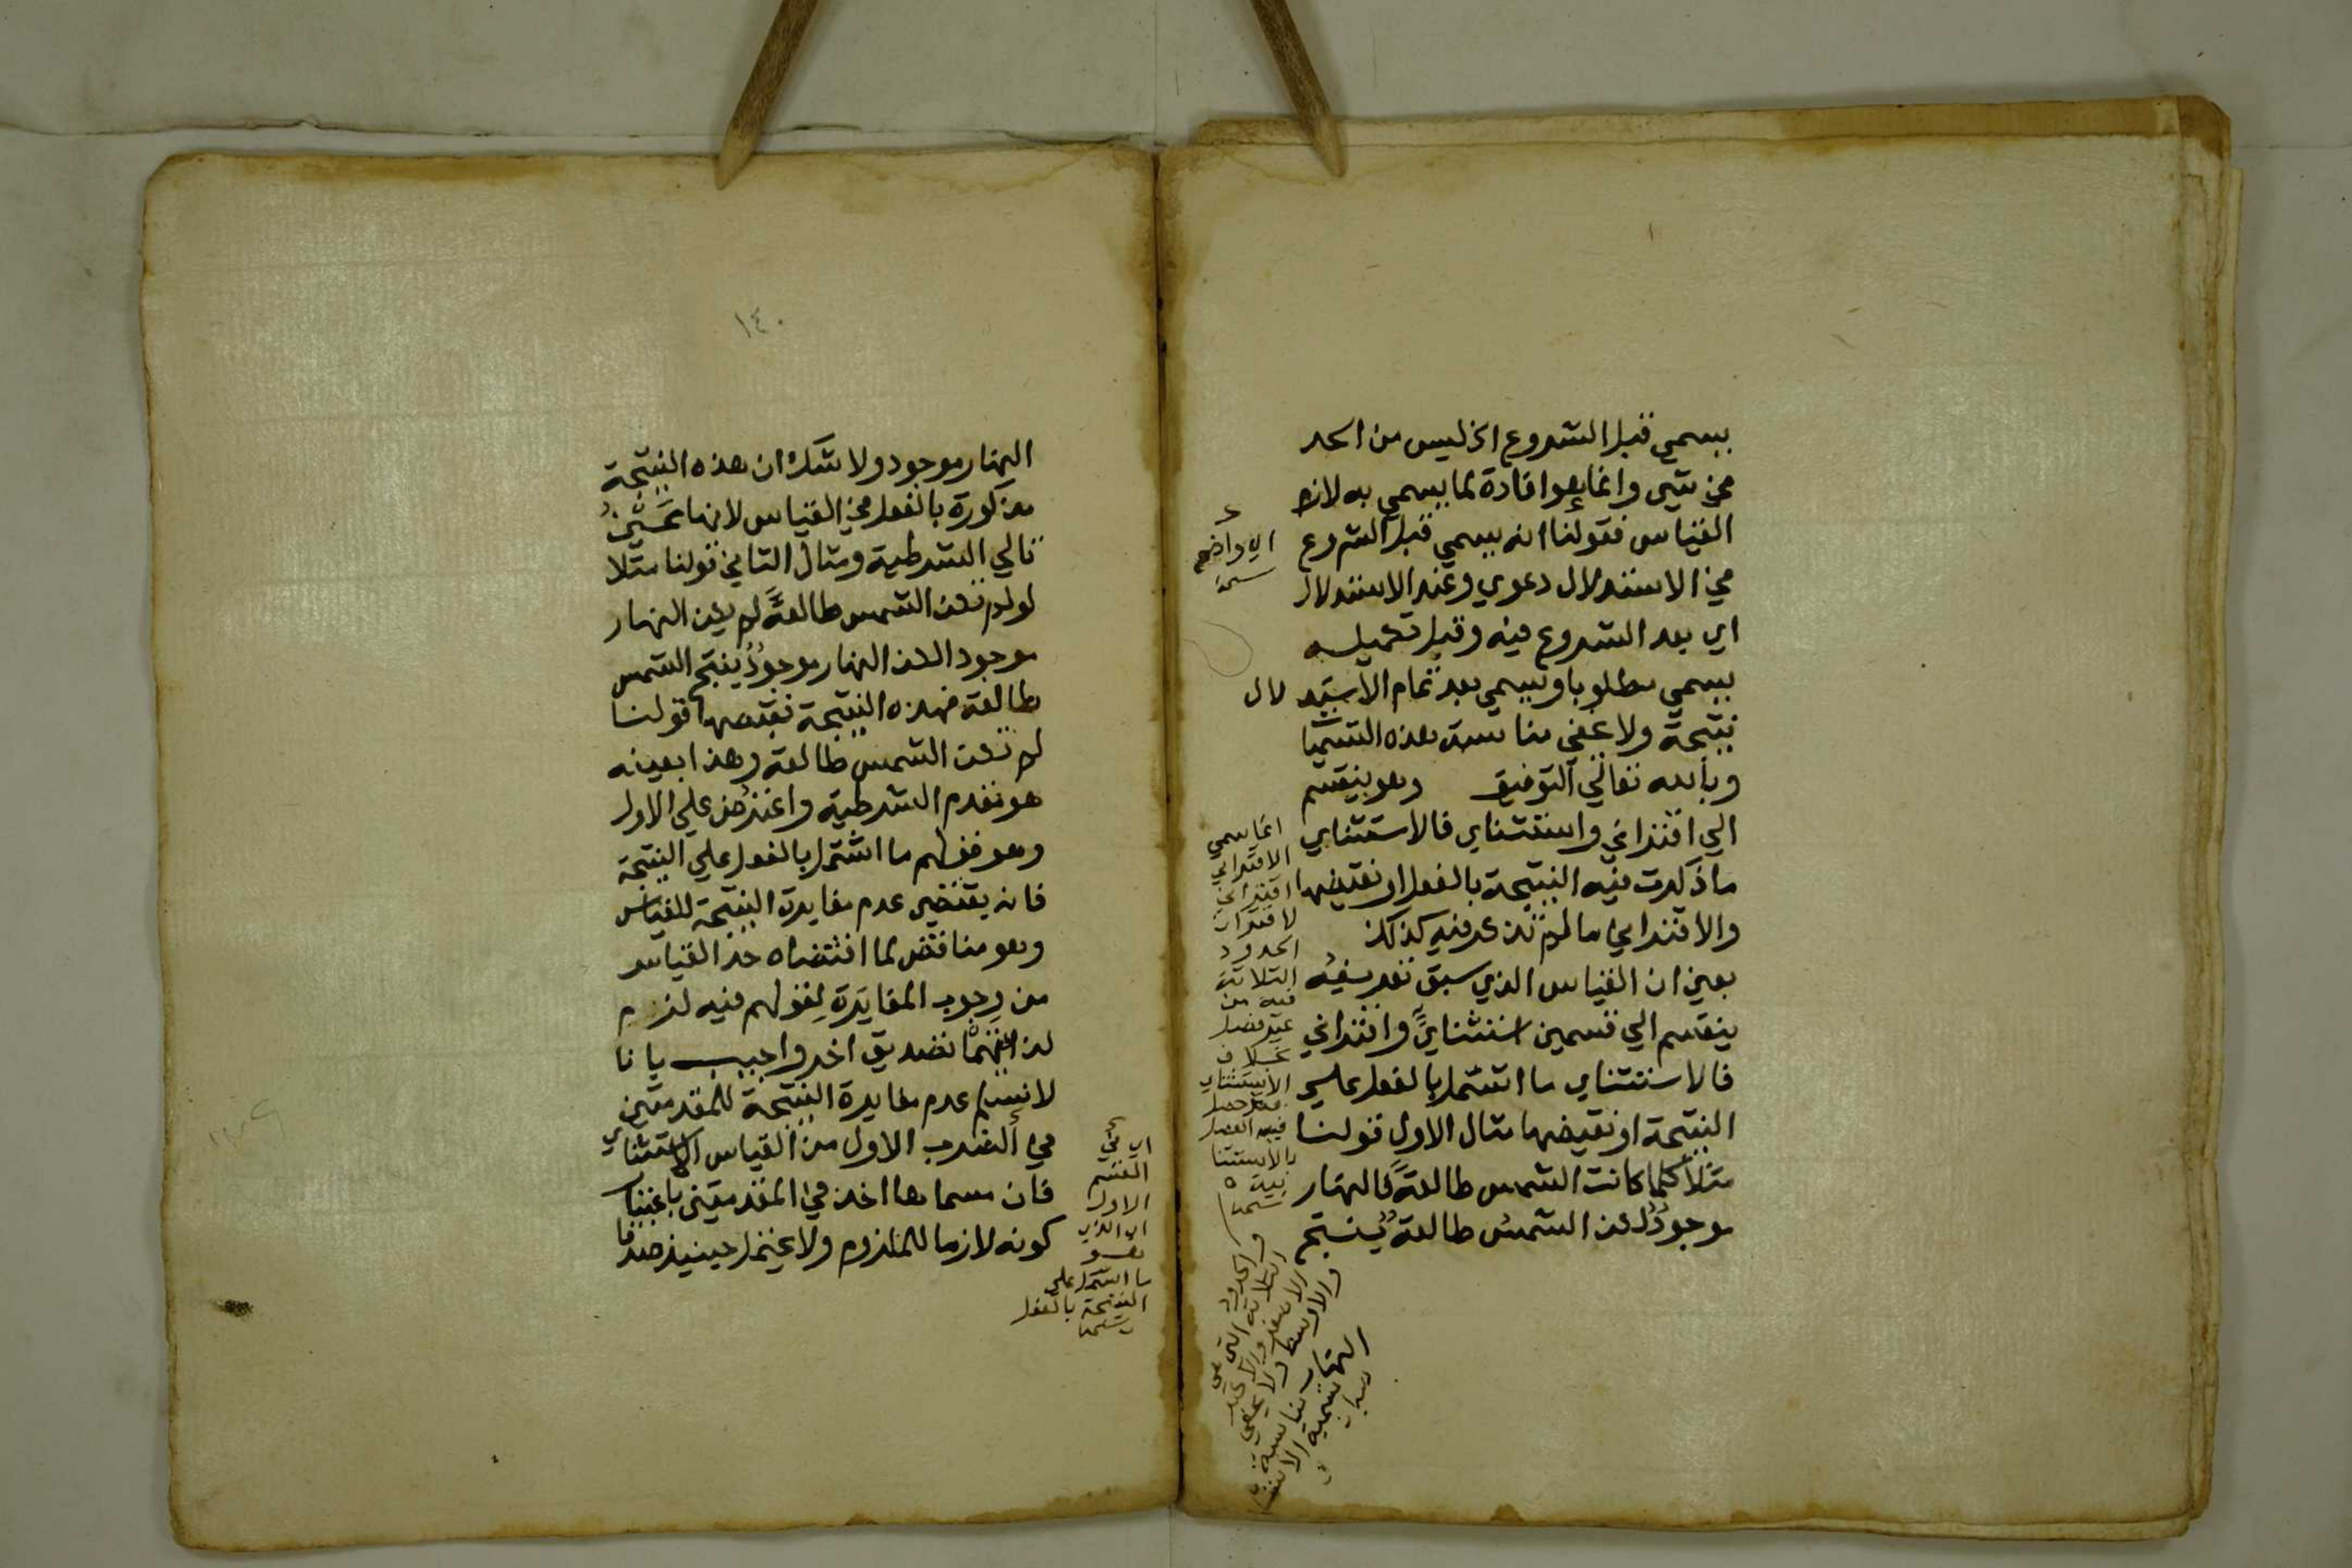 يسمي قبل الشروع اذ ليس من الحد
في شي وانما هو افادة لما يسمي به لازم
القياس فقولنا انه يسمي قبل الشروع
في الاستدلال دعوي وعند الاستدلال
اي بعد الشروع فيه وقبل تكميله
يسمي مطلوبا ويسمي بعد تمام الاستدلال
نتيجة ولا يخفي مناسبة هذه التسميا
وبالله تعالي التوفيق وهو ينقسم
الي اقتراني واستثناي فالاستثناي
ما ذكرت فيه النتيجة بالفعل او نقيضها
والاقتراني ما لم تذكر فيه كذلك
يعني ان القياس الذي سبق تعريفه
ينقسم الي قسمين استثنايٍّ واقتراني
فالاستثناي ما اشتمل بالفعل علي
النتيجة او نقيضها مثال الاول قولنا
مثلا كلما كانت الشمس طالعةً فالنهار
موجودٌ لكن الشمسُ طالعةٌ ينتج
اي واضح
انما سمي
الاقتراني
اقتراني
لاقتران
الحدود
الثلاثة
فيه من
غير فصل
بخلاف
الاستثناي
فقد حصل
فيه الفصل
بالاستثنا
ئية
والحدود
الثلاثة التي هي
الاصغر والاكبر
والاوسط ولا يخفي
١٤٠
النهار موجود ولا شك ان هذه النتيجة
مذكورة بالفعل في القياس لانها عينُ
تالي الشرطية ومثال الثاني قولنا مثلا
لو لم تكن الشمس طالعةً لم يكن النهار
موجود الكن النهار موجودٌ ينتج الشمس
طالعة فهذه النتيجة نقيضها قولنا
لم تكن الشمس طالعة وهذا بعينه
هو مقدم الشرطية واعترض علي الاول
وهو قولهم ما اشتمل بالفعل علي النتيجة
فانه يقتضي عدم مغايرة النتيجة للقياس
وهو مناقض لما اقتضاه حد القياس
من وجوب المغايرة لقولهم فيه لزم
لذاتهما تصديق اخر واجيب بانا
لا نسلم عدم مغايرة النتيجة للمقدمتين
في الضرب الاول من القياس الاستثناي
فان مسماها اخذ في المقدمتين باعتبار
كونه لازما للملزوم ولا يحتمل حينيذ صدقا
اي في
القسم
الاول
اي الذي
هو
ما اشتمل علي
النتيجة بالفعل